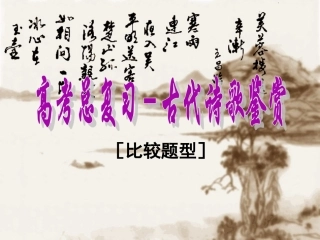 芙蓉楼
辛渐
王昌龄
寒雨
连江
夜入吴
平明送客
楚山孤
洛阳親
如相问一
冰心在
玉壶
高考总复习－古代诗歌鉴赏
[比较题型]